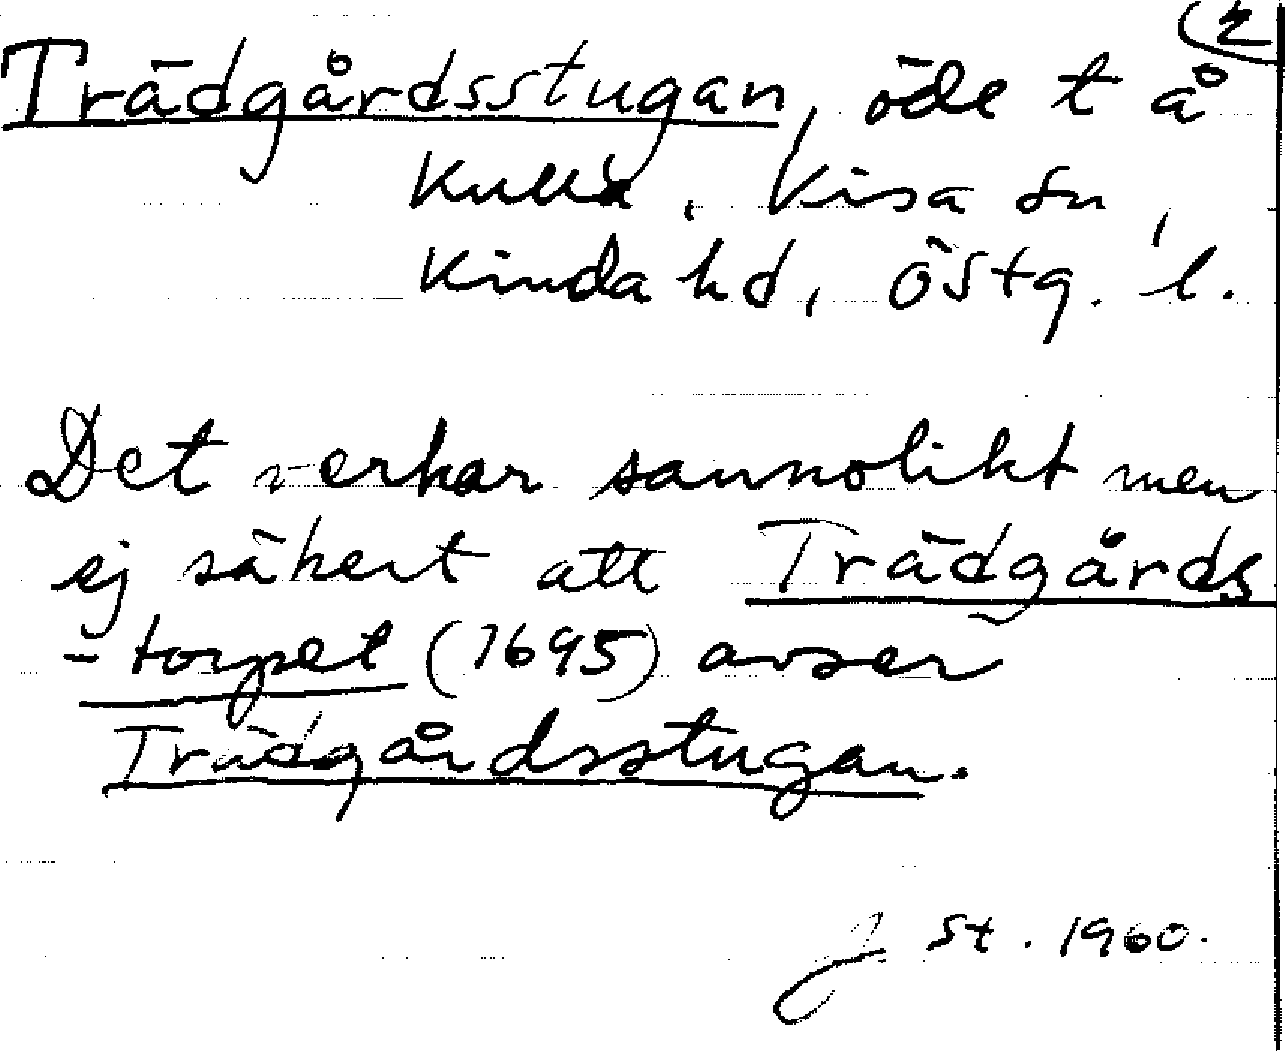 (2
Trädgårdsstugan, öde t å
Kulla, Kisa sn,
Kinda hd, Östg. l.
Det verkar sannolikt men
ej säkert att Trädgårds
-torpet (1695) avser
Trädgårdsstugan.
J St. 1960.